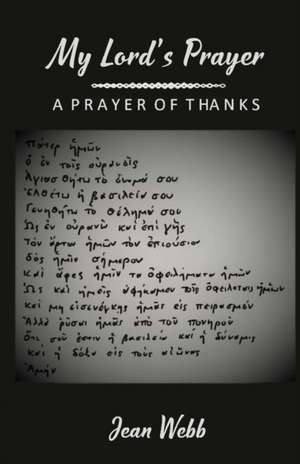 My Lord's Prayer
A PRAYER OF THANKS
Πάτερ ἡμῶν
ὁ ἐν τοῖς οὐρανοῖς
Ἁγιασθήτω τὸ ὄνομά σου
Ἐλθέτω ἡ βασιλεία σου
Γενηθήτω τὸ θέλημά σου
Ὡς ἐν οὐρανῷ καὶ ἐπὶ γῆς
τὸν ἄρτον ἡμῶν τὸν ἐπιούσιον
δὸς ἡμῖν σήμερον
καὶ ἄφες ἡμῖν τα ὀφειλήματα ἡμῶν
Ὡς καὶ ἡμεῖς ἀφήκαμεν τοῖς ὀφειλέταις ἡμῶν
καὶ μη εἰσενέγκῃς ἡμᾶς εἰς πειρασμόν
Ἀλλὰ ῥῦσαι ἡμᾶς ἀπὸ τοῦ πονηροῦ
Ὅτι σοῦ ἐστιν ἡ βασιλεία καὶ ἡ δύναμις
και ἡ δόξα εἰς τοὺς αἰῶνας
Ἀμήν
Jean Webb